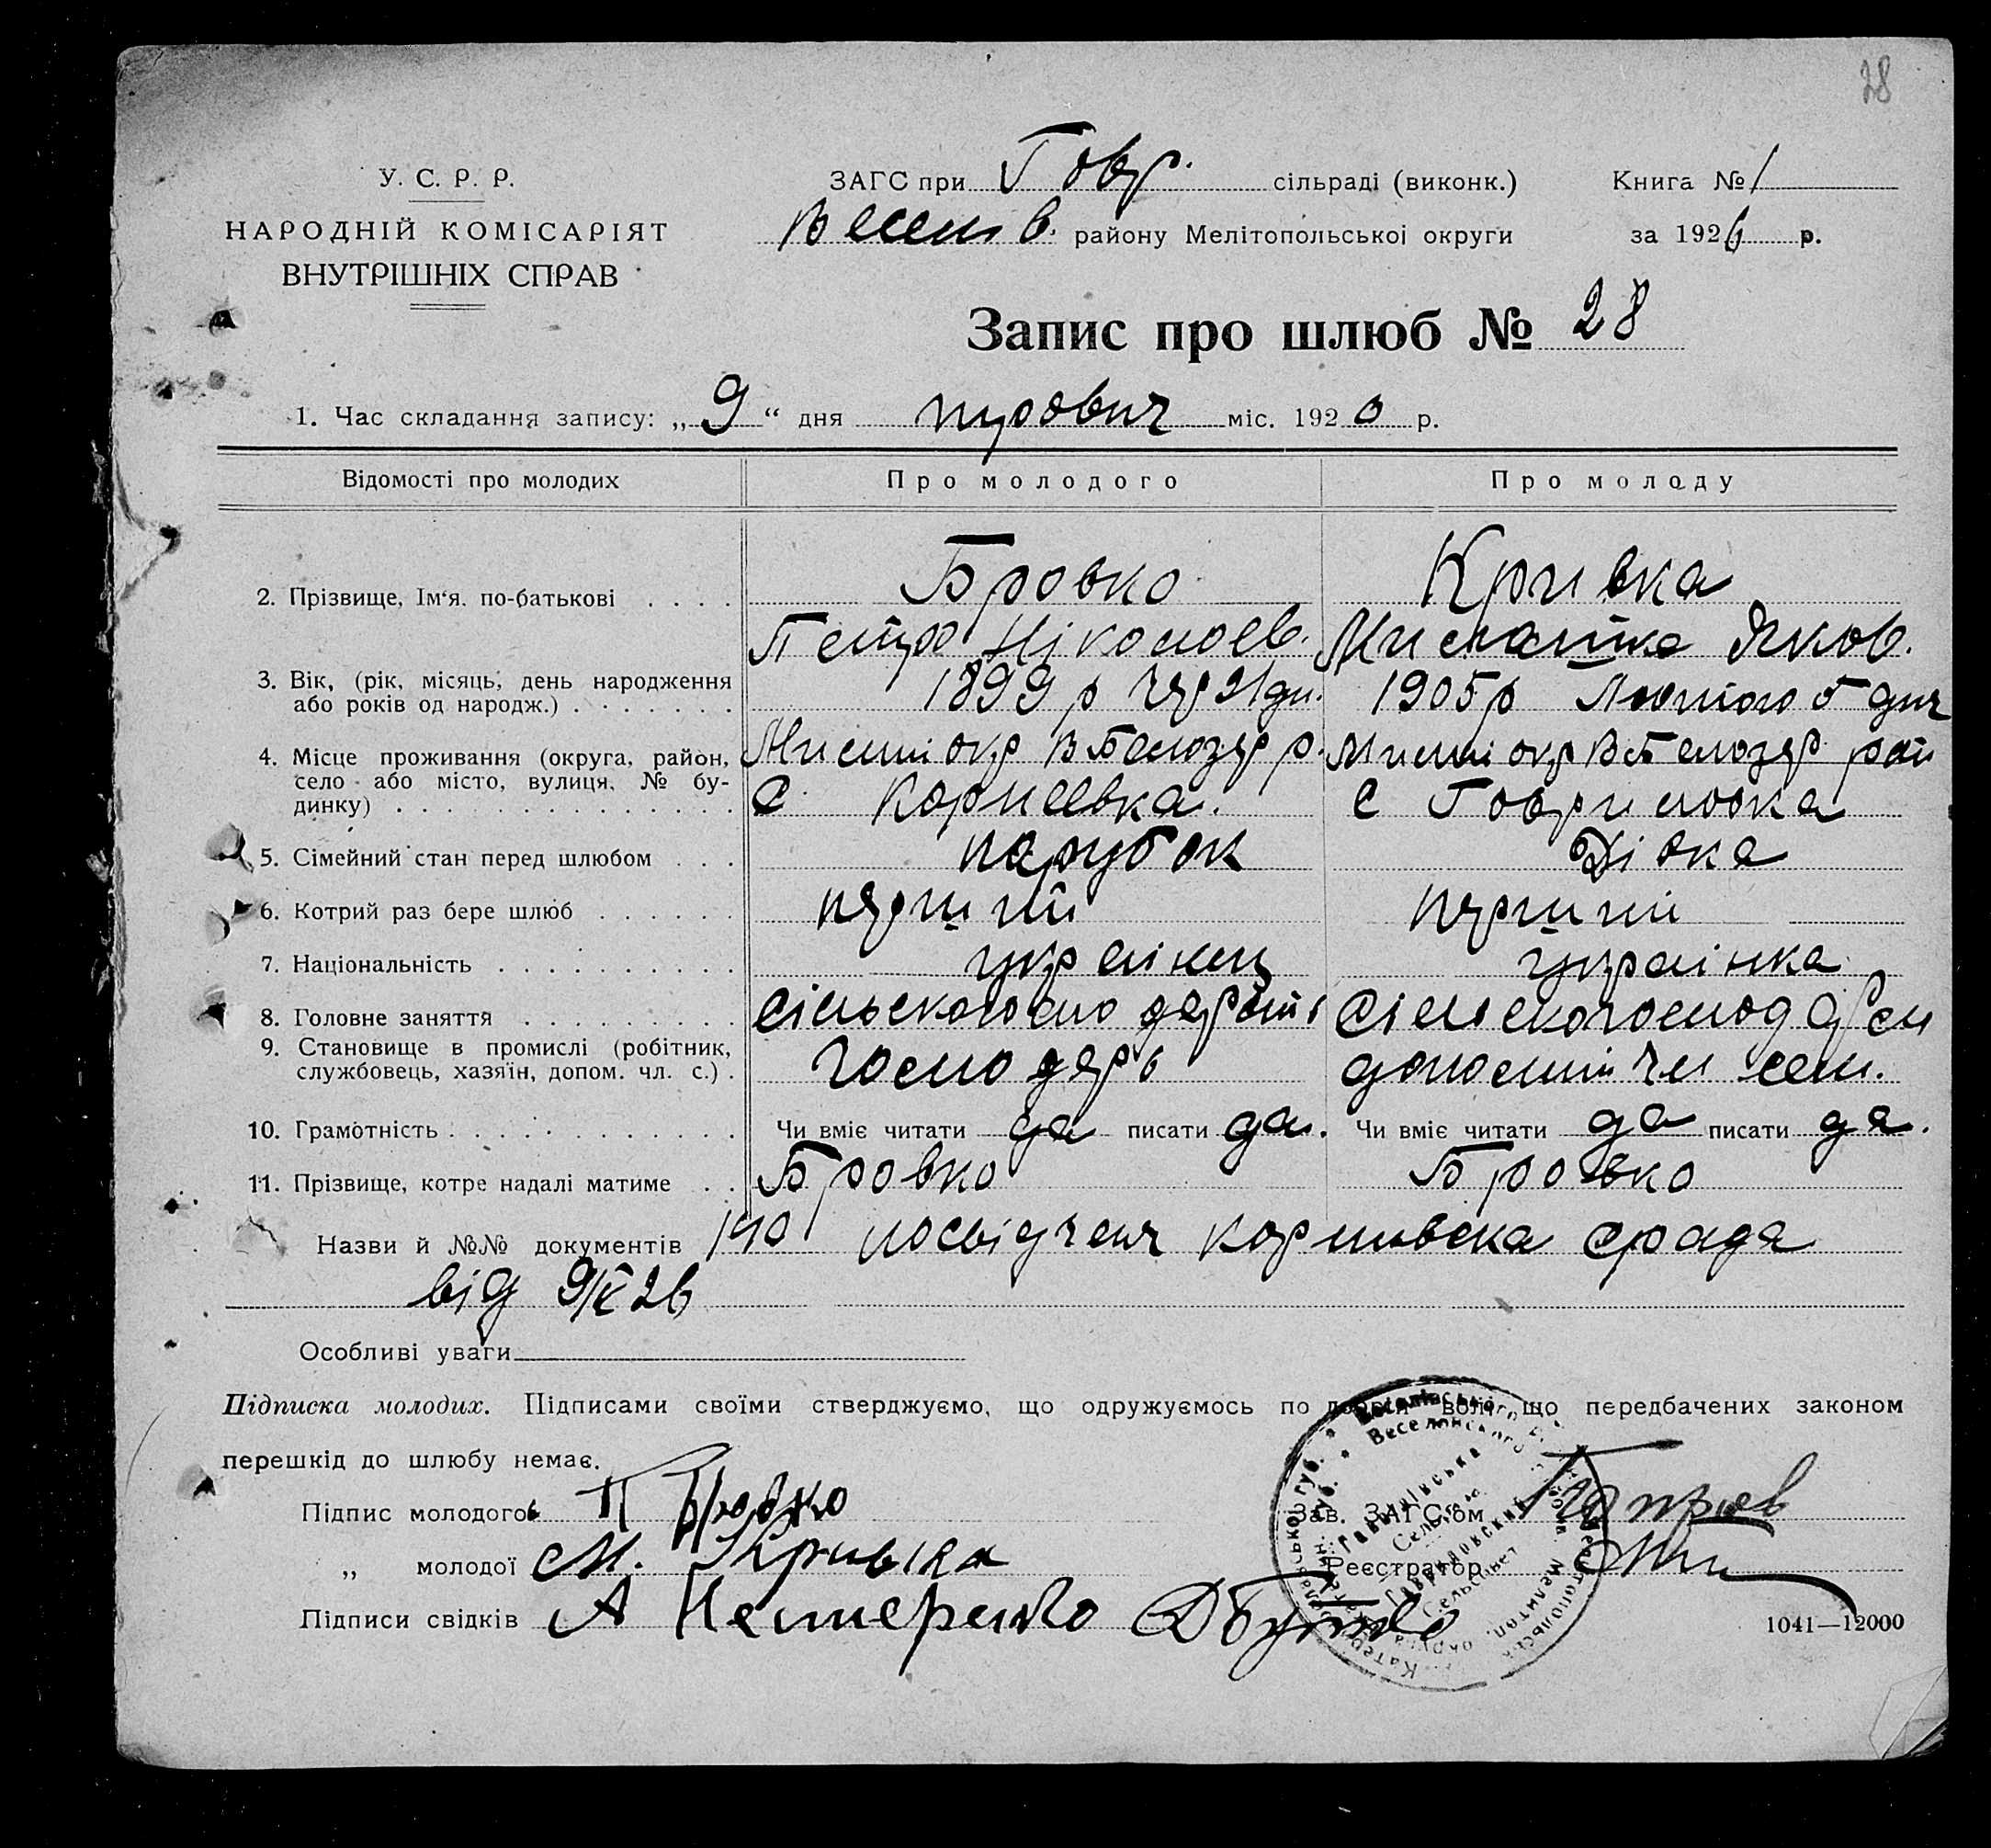 28
У. С. Р. Р.
НАРОДНІЙ КОМІСАРІЯТ
ВНУТРІШНІХ СПРАВ
ЗАГС при Гавр. сільраді (виконк.)
Весел в. району Мелітопольської округи
Книга № 1
за 1926 р.
Запис про шлюб № 28
1. Час складання запису: „ 9 “ дня міс. 192 р.
Відомості про молодих Про молодого Про молоду
2. Прізвище, Ім'я, по-батькові Бровко Кривка
Петро Ніколаєв. Яков.
3. Вік, (рік, місяць, день народження 1899 р 21 дн. 1905 р Лютого 5 дня
або років од народж.)
4. Місце проживання (округа, район, окр В Белозер р. окр В Белозер рай
село або місто, вулиця, № бу- С Корнеевка. С Гавриловка
динку)
5. Сімейний стан перед шлюбом парубок Дівка
6. Котрий раз бере шлюб перший перший
7. Національність украінец украінка
8. Головне заняття
9. Становище в промислі (робітник, господарь сем.
службовець, хазяїн, допом. чл. с.)
10. Грамотність Чи вміє читати да писати да. Чи вміє читати да писати да.
11. Прізвище, котре надалі матиме Бровко Бровко
Назви й №№ документів 190 посвідченя срада
від 9/X 26
Особливі уваги
Підписка молодих. Підписами своїми стверджуємо, що одружуємось по добрій волі, що передбачених законом
перешкід до шлюбу немає.
Підпис молодого П Бровко
„ молодої М. Кривка
Підписи свідків А Нестеренко
Зав. ЗАГС'ом
Реєстратор
1041—12000